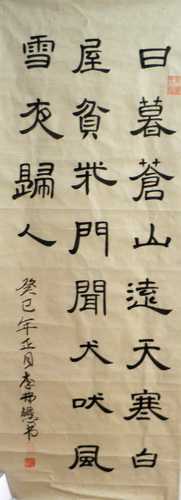 日暮蒼山遠天寒白
屋貧柴門聞犬吠風
雪夜歸人
癸巳年正月李